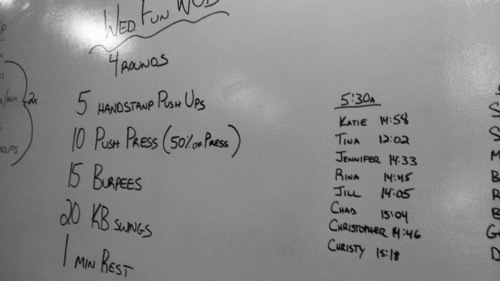 WED FUN WOD
4 ROUNDS
5 HANDSTAND PUSH UPS
10 PUSH PRESS (50% OF PRESS)
15 BURPEES
20 KB SWINGS
1 MIN REST
2x
5:30A
KATIE 14:58
TINA 12:02
JENNIFER 14:33
RINA 14:45
JILL 14:05
CHAD 15:04
CHRISTOPHER 14:46
CHRISTY 15:18